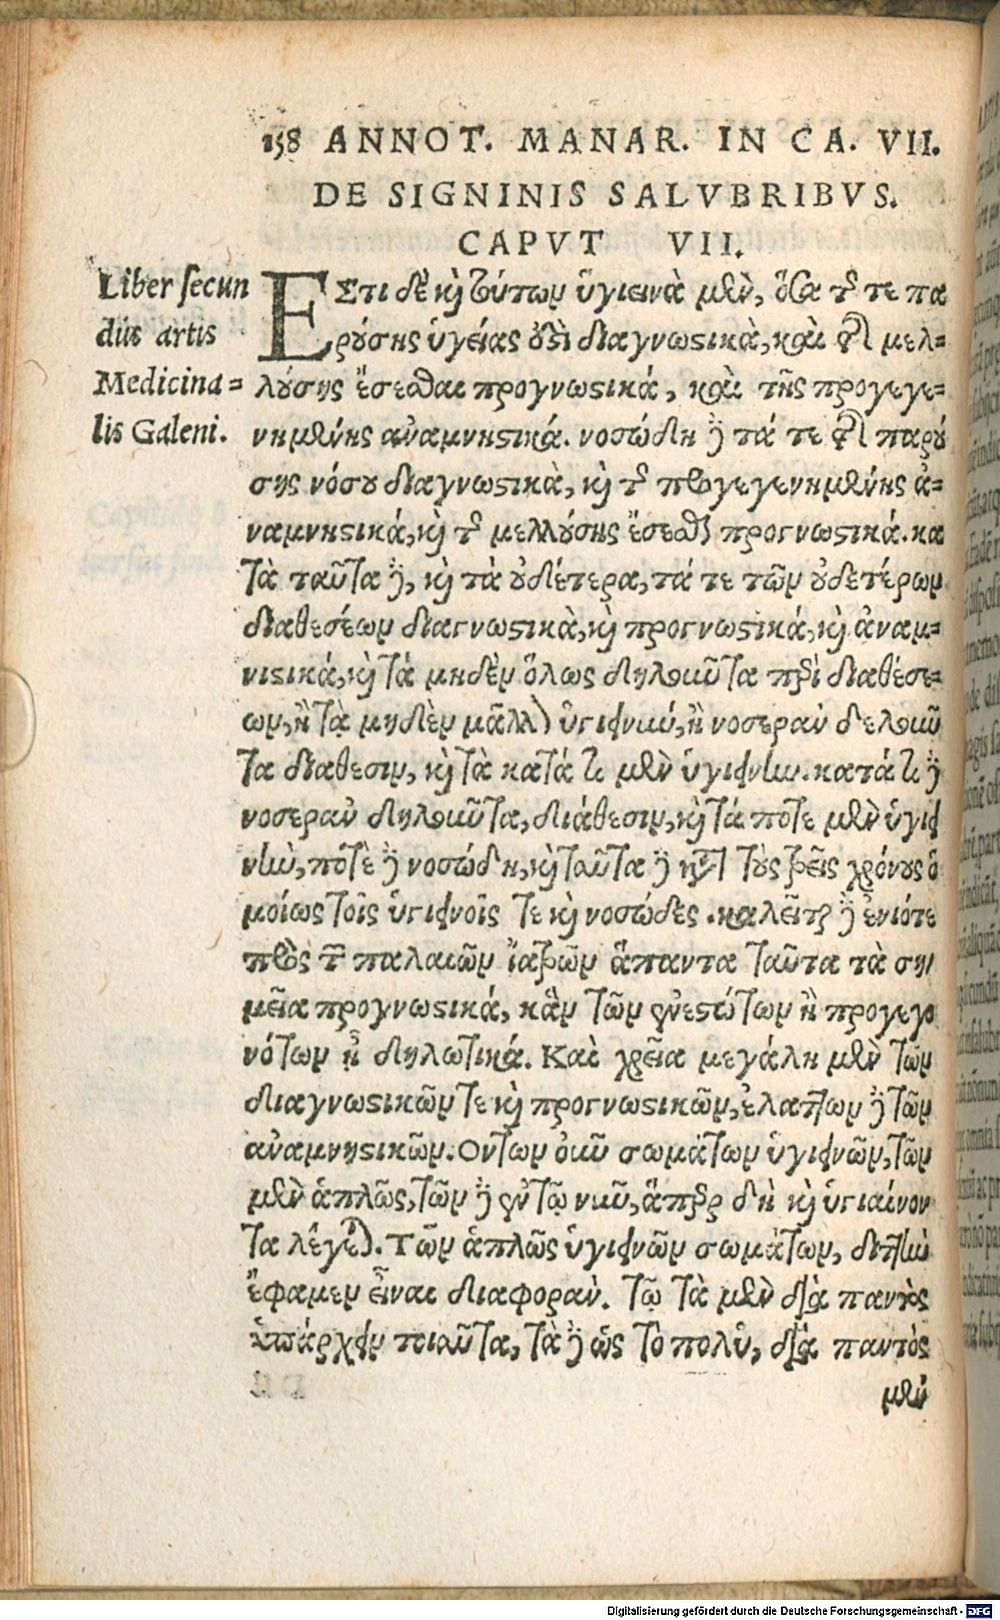 158 ANNOT. MANAR. IN CA. VII.
DE SIGNINIS SALVBRIBVS.
CAPVT VII.
Liber secun
dus artis
Medicina=
lis Galeni.
ΕΣτι δὲ κὶ τούτων ὑγιεινὰ μὲν, ὅσα τῆς τε πα
ρούσης ὑγείας ἐστὶ διαγνωστικὰ, καὶ τῆς μελ=
λούσης ἔσεσθαι προγνωστικά, καὶ τῆς προγεγε=
νημένης ἀναμνηστικά. νοσώδη δὲ τά τε τῆς παρού
σης νόσου διαγνωστικὰ, κὶ τῆς προγεγενημένης ἀ=
ναμνηστικά, κὶ τῆς μελλούσης ἔσεσθαι προγνωστικά. κα
τὰ ταῦτα δὲ, κὶ τὰ οὐδέτερα, τά τε τῶν οὐδετέρων
διαθεσέων διαγνωστικὰ, κὶ προγνωστικά, κὶ ἀναμ=
νιστικά, κὶ τά μηδὲν ὅλως δηλοῦντα περὶ διαθέσε=
ων, ἢ τὰ μηδὲν μᾶλλον ὑγιεινὴν, ἢ νοσερὰν δελοῦν
τα διαθεσιν, κὶ τὰ κατά τι μὲν ὑγιεινὴν. κατά τι δὲ
νοσερὰν δηλοῦντα, διάθεσιν, κὶ τά ποτε μὲν ὑγιει
νὴν, πότὲ δὲ νοσώδη, κὶ ταῦτα δὲ κατὰ τοὺς τρεῖς χρόνους ὁ
μοίως τοῖς ὑγιεινοῖς τε κὶ νοσώδες. καλεῖται δὲ ἐνιότε
πρὸς τῶν παλαιῶν ἰατρῶν ἅπαντα ταῦτα τὰ ση
μεῖα προγνωστικά, κἂν τῶν ἐνεστώτων ἢ προγεγο
νότων ᾖ δηλωτικά. Καὶ χρεία μεγάλη μὲν τῶν
διαγνωστικῶν τε κὶ προγνωστικῶν, ἐλάττων δὲ τῶν
ἀναμνηστικῶν. Οντων οὖν σωμάτων ὑγιεινῶν, τῶν
μὲν ἁπλῶς, τῶν δὲ ἐν τῷ νῦν, ἅπερ δὴ κὶ ὑγιαίνον
τα λέγεται. Τῶν ἁπλῶς ὑγιεινῶν σωμάτων, διττὴν
ἔφαμεν εἶναι διαφοράν. τῷ τὰ μὲν διὰ παντὸς
ὑπάρχειν τοιαῦτα, τὰ δὲ ὡς τὸ πολύ, διὰ παντὸς
μὲν
Digitalisierung gefördert durch die Deutsche Forschungsgemeinschaft - DFG